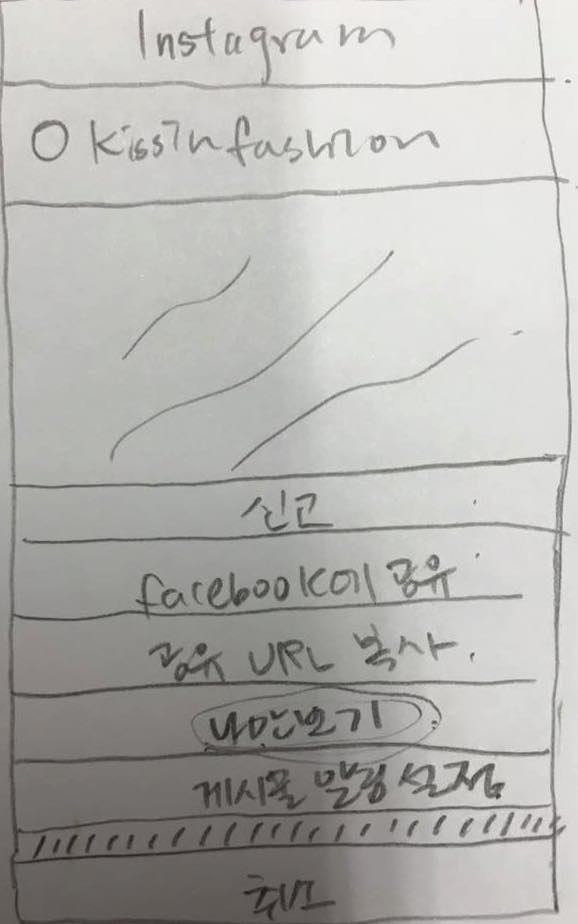 Instagram
kissinfashion
신고
facebook에 공유
공유 URL 복사.
나만보기
게시물 알림 설정
취소